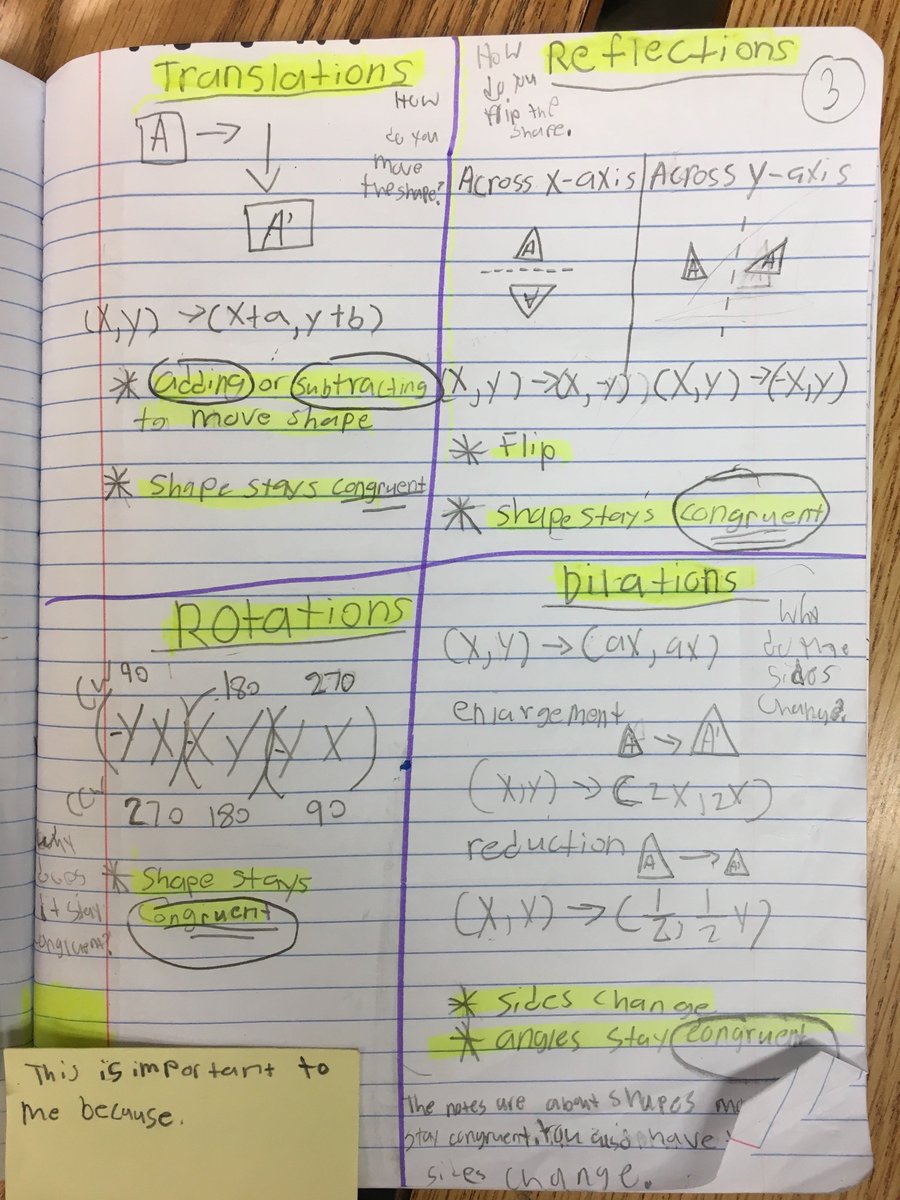 3
Translations
How
do you
move
the shape?
A →
A'
(X,Y) → (X+a, y+b)
* adding or subtracting
to move shape
* Shape stays congruent
Reflections
How
do you
flip the
shape.
Across x-axis
A
A
(X,Y) → (X,-Y)
Across y-axis
A A
(X,Y) → (-X,Y)
* Flip
* shape stay's congruent
Rotations
90 180 270
(-Y X) (-X Y) (-Y X)
270 180 90
why
does
it stay
congruent?
* Shape stays
congruent
Dilations
Why
do the
sides
change?
(X,Y) → (ax, ax)
enlargement
A → A'
(X,Y) → (2X, 2X)
reduction
A → A'
(X,X) → (1/2, 1/2 Y)
* sides change
* angles stay congruent
The notes are about shapes
stay congruent. You also have
sides change.
This is important to
me because.